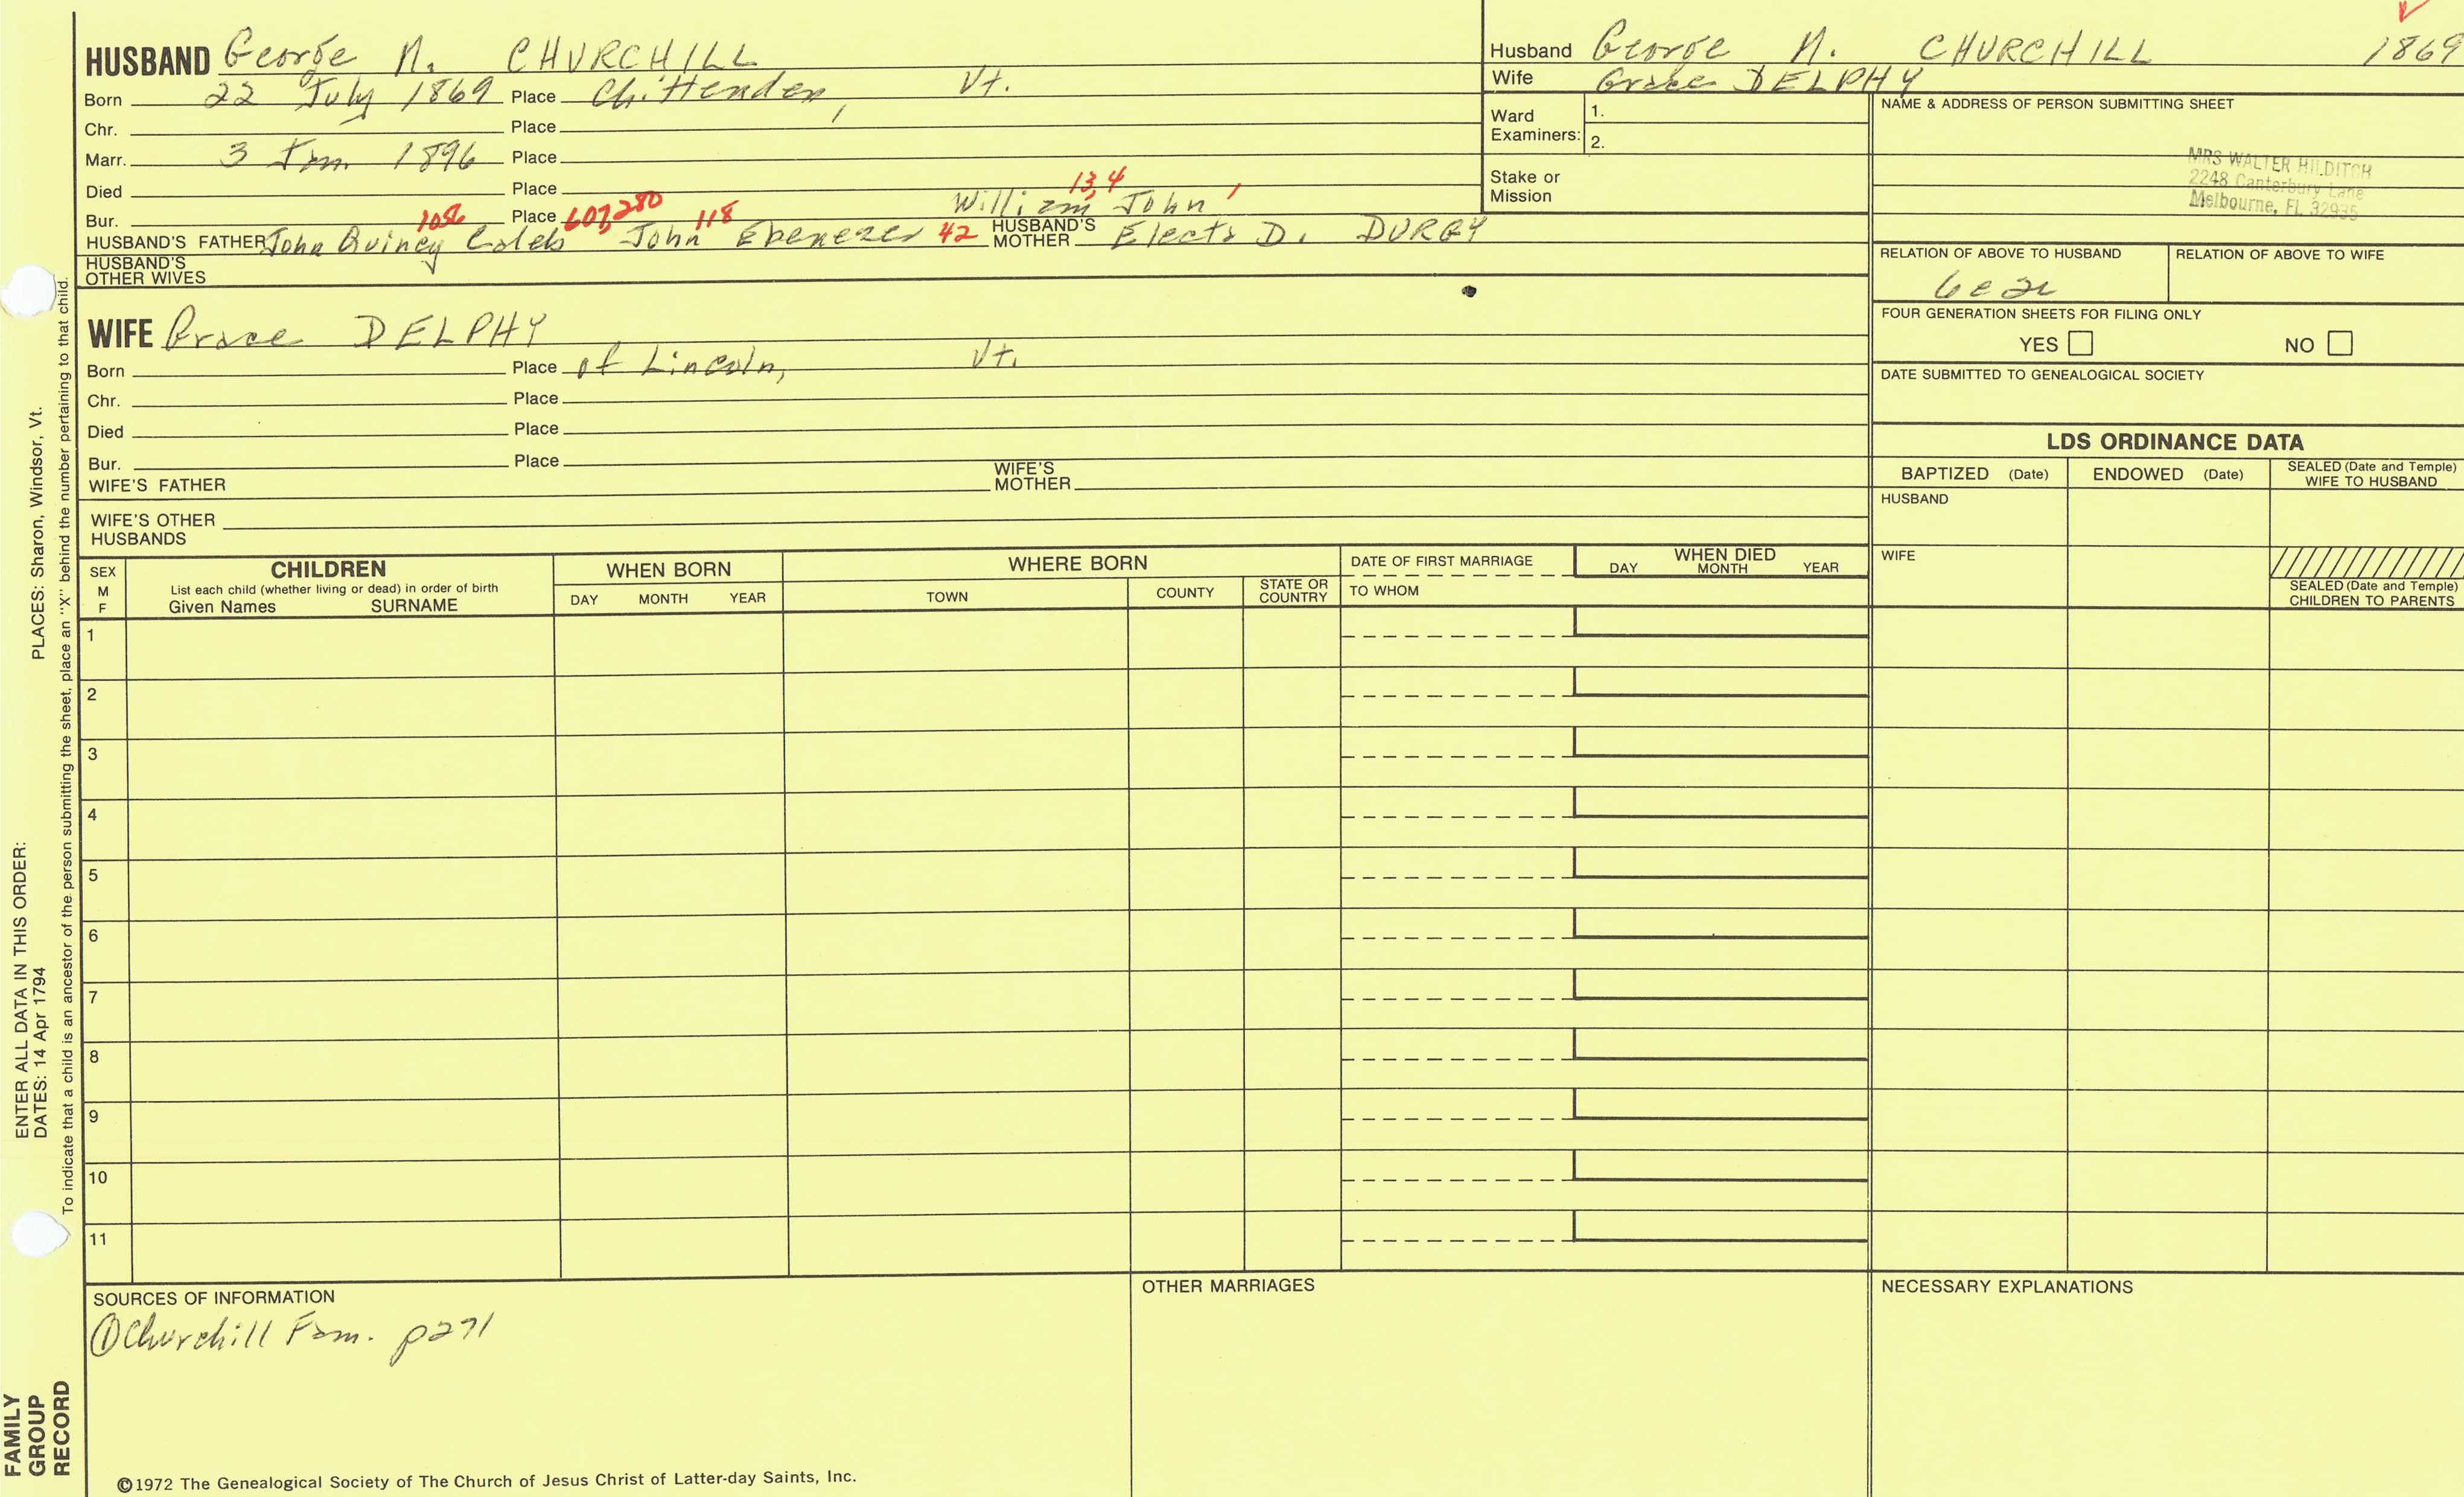 HUSBAND George M. CHURCHILL
Born 22 July 1869 Place Chittenden, Vt.
Chr. Place
Marr. 3 Jan. 1896 Place
Died Place
Bur. Place
1056 607, 280 118 William 13, 4 John 1
HUSBAND'S FATHER John Quincy Caleb John Ebenezer 42 HUSBAND'S MOTHER Electa D. DURGY
HUSBAND'S OTHER WIVES
WIFE Grace DELPHY
Born Place of Lincoln, Vt.
Chr. Place
Died Place
Bur. Place
WIFE'S FATHER WIFE'S MOTHER
WIFE'S OTHER HUSBANDS
Husband George M. CHURCHILL 1869
Wife Grace DELPHY
Ward Examiners: 1.
2.
Stake or Mission
NAME & ADDRESS OF PERSON SUBMITTING SHEET
MRS WALTER HILDITCH
2248 Canterbury Lane
Melbourne, FL 32935
RELATION OF ABOVE TO HUSBAND RELATION OF ABOVE TO WIFE
FOUR GENERATION SHEETS FOR FILING ONLY
YES NO
DATE SUBMITTED TO GENEALOGICAL SOCIETY
LDS ORDINANCE DATA
BAPTIZED (Date) ENDOWED (Date) SEALED (Date and Temple) WIFE TO HUSBAND
HUSBAND
WIFE
SEALED (Date and Temple) CHILDREN TO PARENTS
SEX M F
CHILDREN
List each child (whether living or dead) in order of birth
Given Names SURNAME
WHEN BORN
DAY MONTH YEAR
WHERE BORN
TOWN COUNTY STATE OR COUNTRY
DATE OF FIRST MARRIAGE
TO WHOM
WHEN DIED
DAY MONTH YEAR
1
2
3
4
5
6
7
8
9
10
11
SOURCES OF INFORMATION
① Churchill Fam. p271
OTHER MARRIAGES
NECESSARY EXPLANATIONS
©1972 The Genealogical Society of The Church of Jesus Christ of Latter-day Saints, Inc.
ENTER ALL DATA IN THIS ORDER:
DATES: 14 Apr 1794 PLACES: Sharon, Windsor, Vt.
To indicate that a child is an ancestor of the person submitting the sheet, place an "X" behind the number pertaining to that child.
FAMILY
GROUP
RECORD